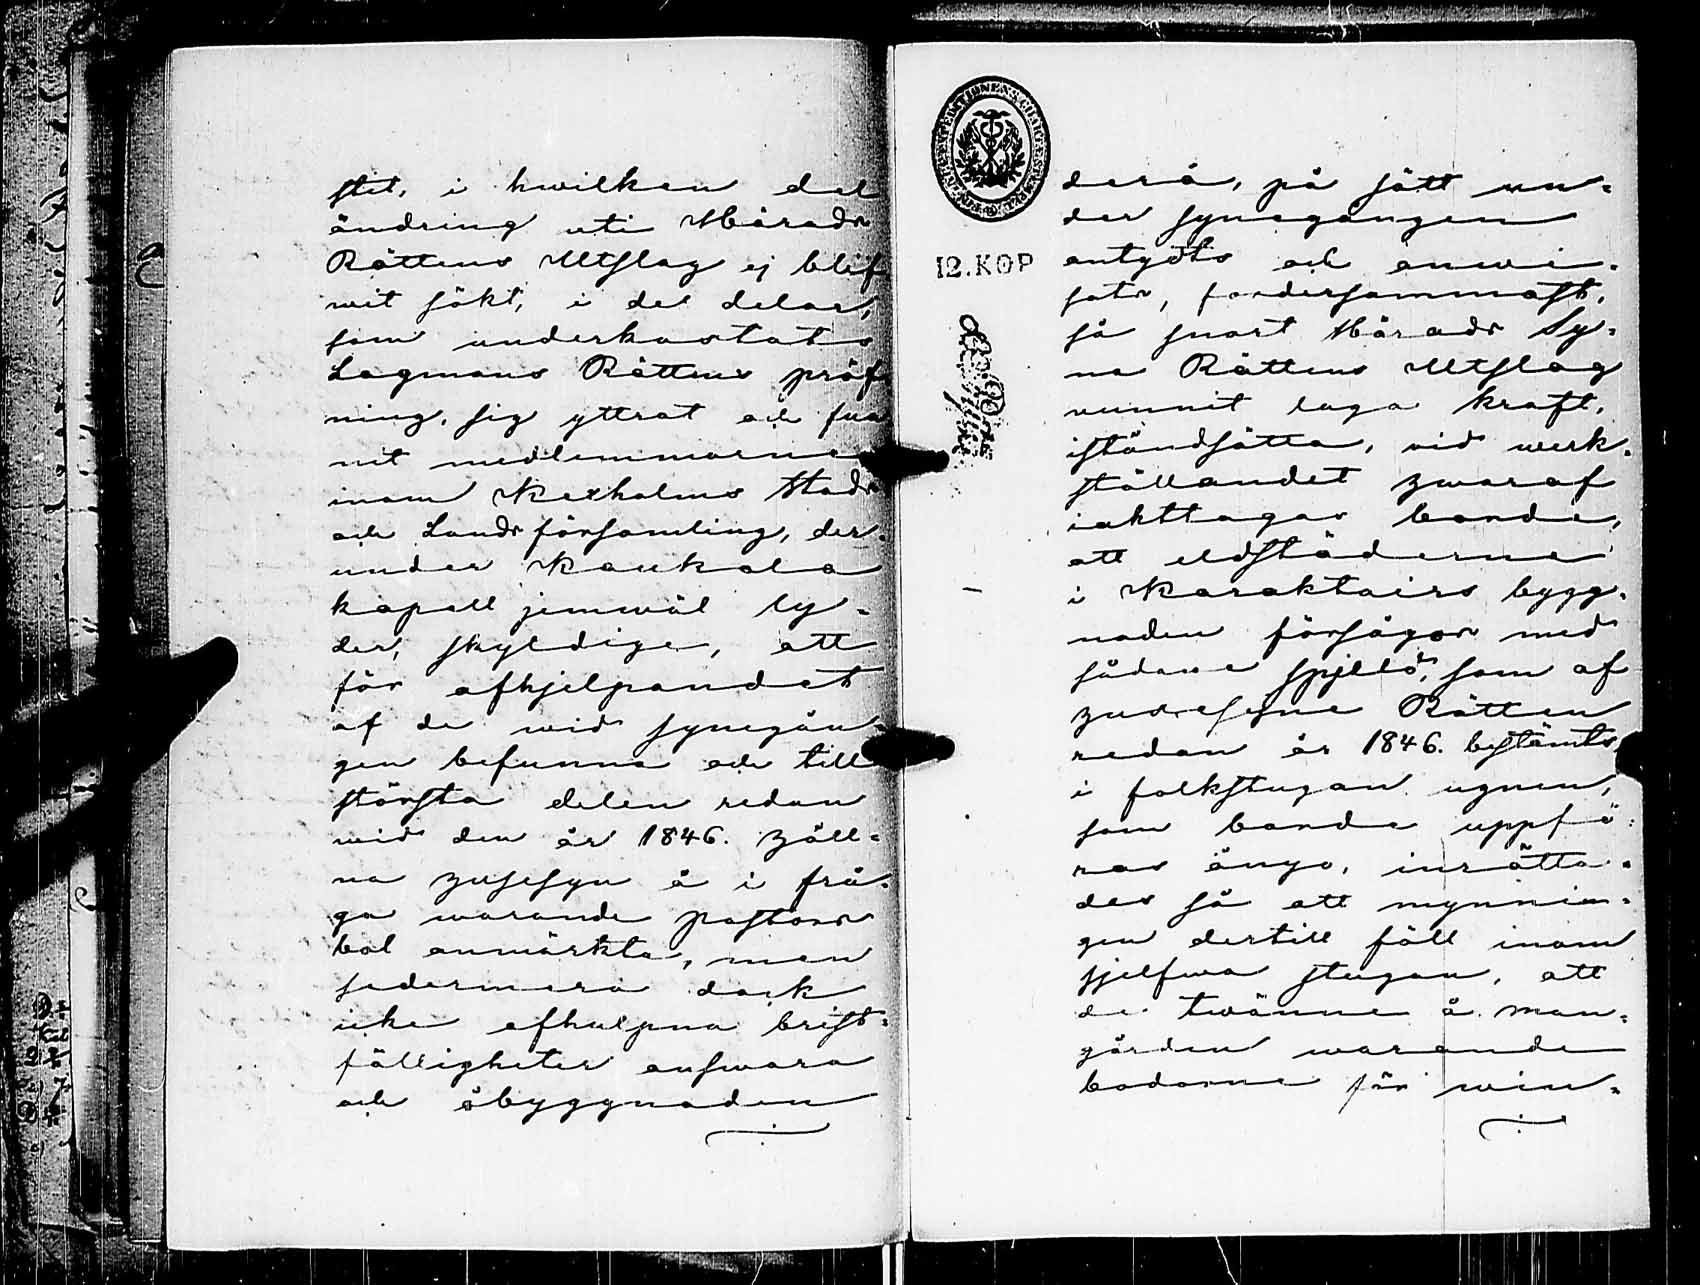 stet, i hwilken del
ändring uti Härads
Rättens Utslag ej blif
wit sökt, i de delar,
som underkastats
Lagmans Rättens pröf
ning, sig yttrat och fun
nit medlemmarne
inom Kexholms Stads
och Landsförsamling, der-
under Kaukola
kapell jemwäl ly-
der, skyldige, att
för afhjelpandet
af de wid synegån-
gen befunna och till
största delen redan
wid den år 1846. håll-
na husesyn å i frå-
ga warande pastors
bol anmärkta, men
sedermera dock
icke afhulpna brist-
fälligheter answara
och åbyggnaden
12. KOP
derå, på sätt un-
der synegången
antydts och anwi-
sats, fordersammast,
så snart Härads Sy-
ne Rättens Utslag
vunnit laga kraft,
iståndsätta, vid werk-
ställandet hwaraf
iakttagas borde,
att eldstäderne
i Karaktairs bygg-
naden försågos med
sådane spjeld, som af
husesyne Rätten
redan år 1846. bestämts
i folkstugan ugnen,
som borde uppfö-
ras å nyo, inrätta-
des så att mynnin-
gen dertill föll inom
sjelfwa stugan, att
de twänne å man-
gården warande
bodarne för win-